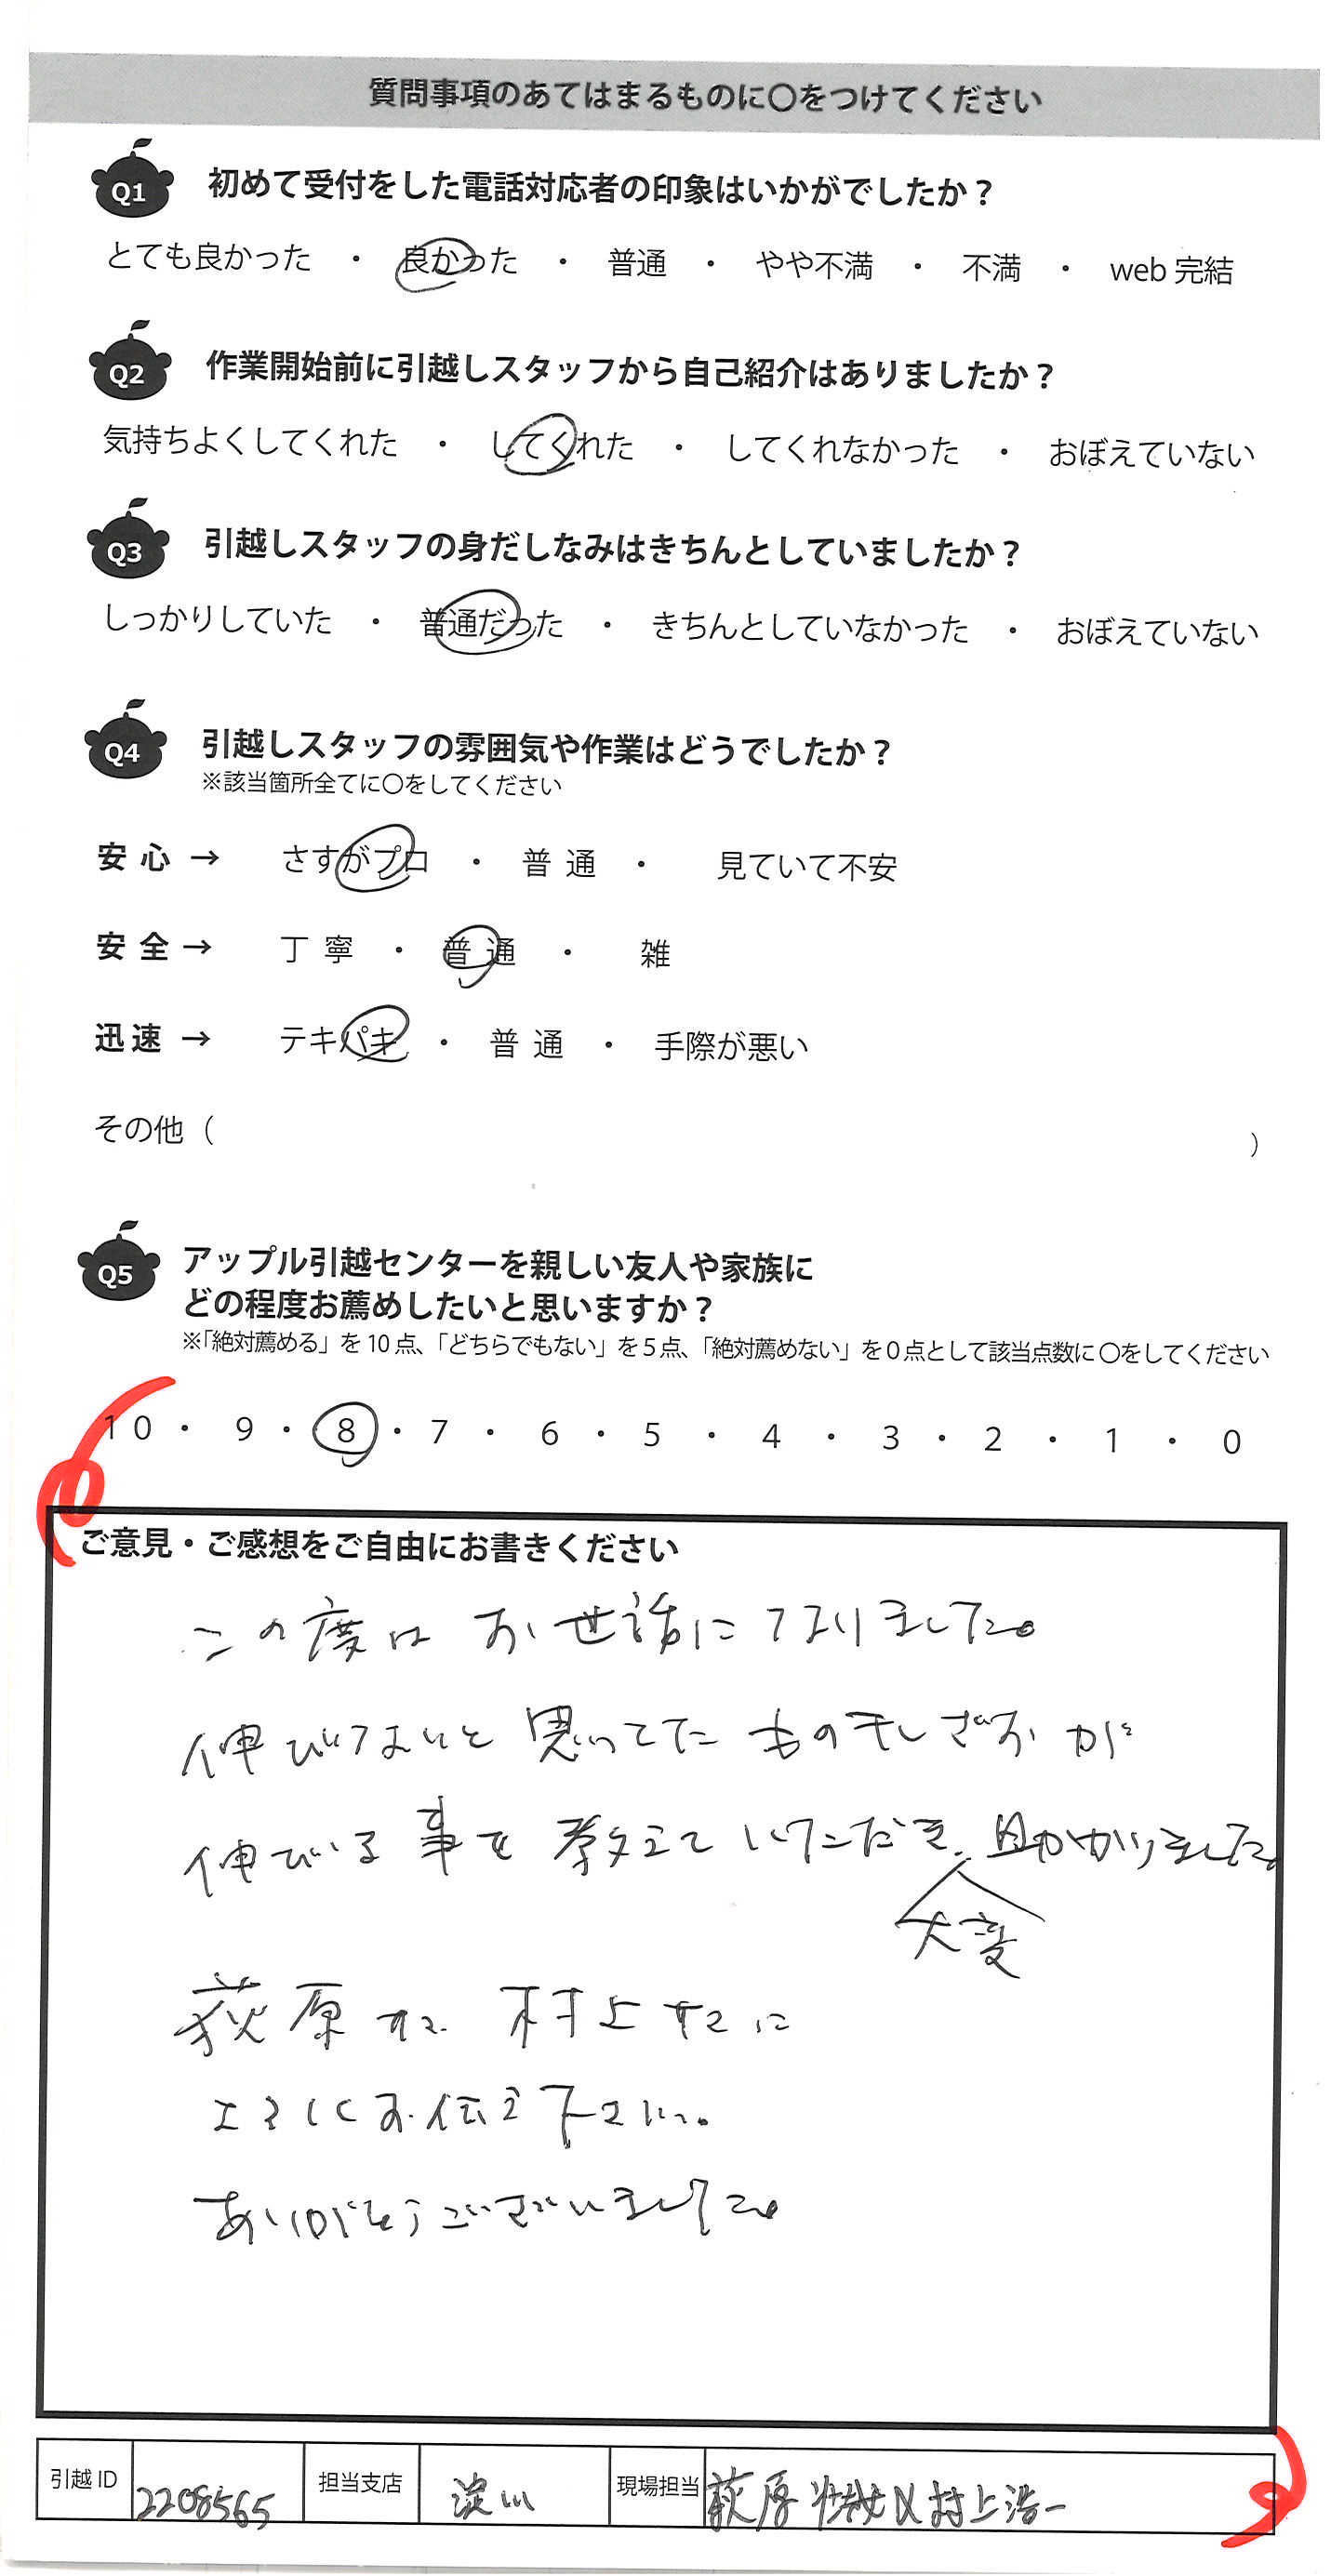 質問事項のあてはまるものに○をつけてください
Q1 初めて受付をした電話対応者の印象はいかがでしたか？
とても良かった ・ 良かった ・ 普通 ・ やや不満 ・ 不満 ・ web 完結
Q2 作業開始前に引越しスタッフから自己紹介はありましたか？
気持ちよくしてくれた ・ してくれた ・ してくれなかった ・ おぼえていない
Q3 引越しスタッフの身だしなみはきちんとしていましたか？
しっかりしていた ・ 普通だった ・ きちんとしていなかった ・ おぼえていない
Q4 引越しスタッフの雰囲気や作業はどうでしたか？
※該当箇所全てに○をしてください
安心 → さすがプロ ・ 普通 ・ 見ていて不安
安全 → 丁寧 ・ 普通 ・ 雑
迅速 → テキパキ ・ 普通 ・ 手際が悪い
その他（ ）
Q5 アップル引越センターを親しい友人や家族に
どの程度お薦めしたいと思いますか？
※「絶対薦める」を 10 点、「どちらでもない」を 5 点、「絶対薦めない」を 0 点として該当点数に ○をしてください
10 ・ 9 ・ 8 ・ 7 ・ 6 ・ 5 ・ 4 ・ 3 ・ 2 ・ 1 ・ 0
ご意見・ご感想をご自由にお書きください
この度は お世話になりました。
伸びないと思ってた ものほしざおが
伸びる事を教えていただき、助かりました。
大変
荻原さん 村上さんに
よろしくお伝え下さい。
ありがとうございました。
引越 ID 2208565 担当支店 淀川 現場担当 荻原 村上浩一